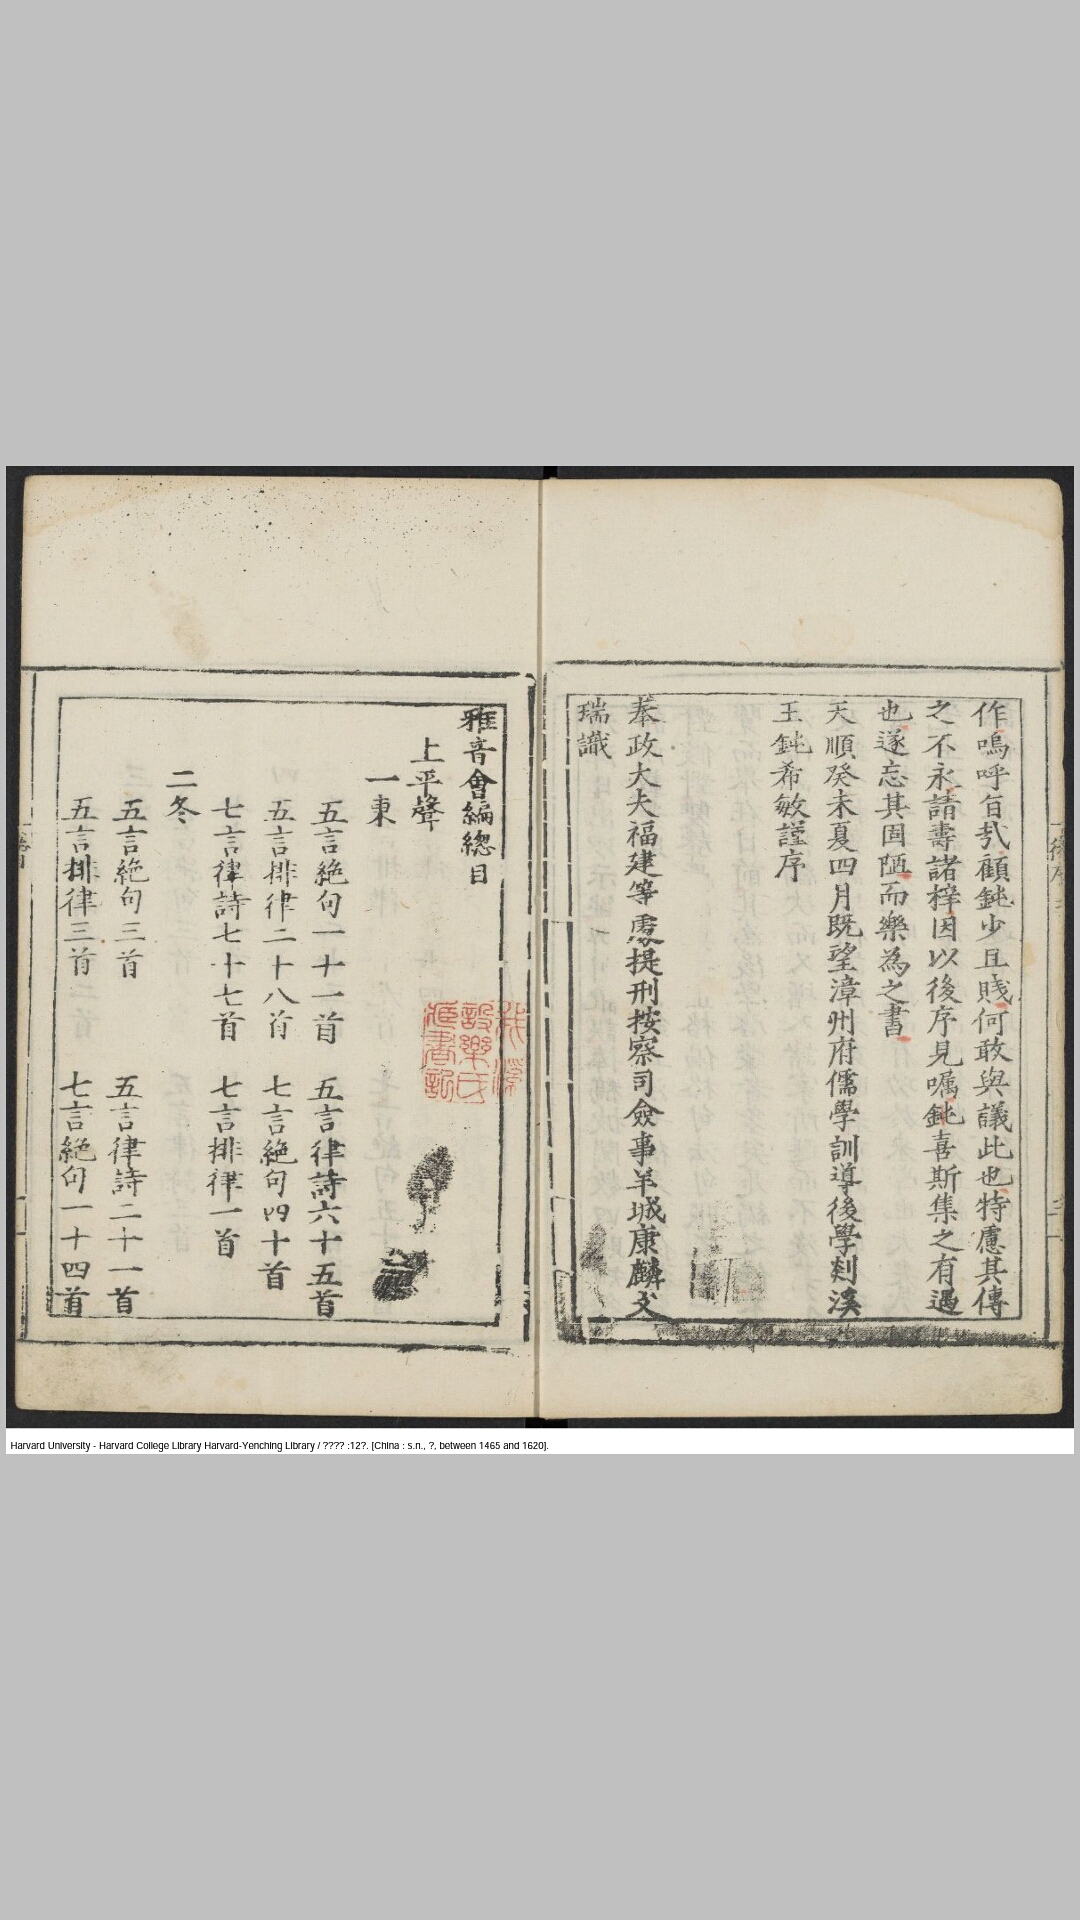 作嗚呼旨㢤顧鈍少且賤何敢與議此也特慮其傳
之不永請壽諸梓因以後序見囑鈍喜斯集之有遇
也遂忘其固陋而樂為之書
天順癸未夏四月既望漳州府儒學訓導後學剡溪
王鈍希敏謹序
奉政大夫福建等處提刑按察司僉事羊城康麟文
瑞識
雅音會編總目
上平聲
一東
五言絶句一十一首 五言律詩六十五首
五言排律二十八首 七言絶句四十首
七言律詩七十七首 七言排律一首
二冬
五言絶句三首 五言律詩二十一首
五言排律三首 七言絶句一十四首
Harvard University - Harvard College Library Harvard-Yenching Library / ???? :12?. [China : s.n., ?, between 1465 and 1620].